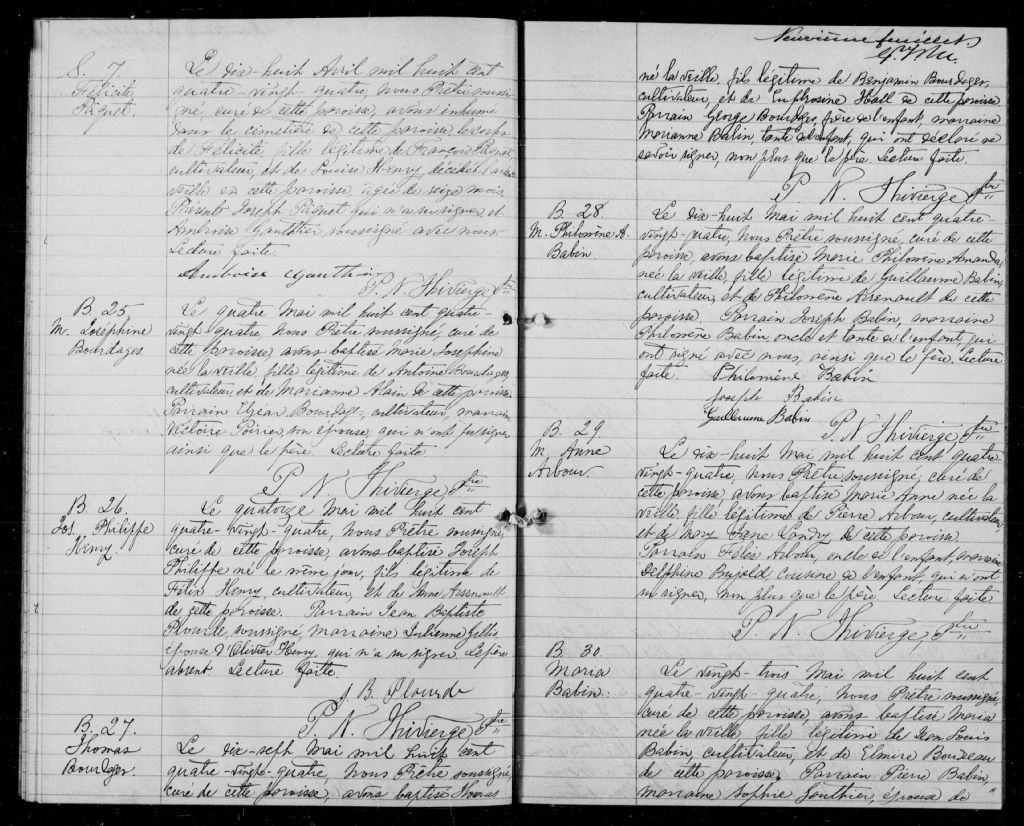 S. 7
Félicité
Paquet.
Le dix-huit Avril mil huit cent
quatre-vingt-quatre, nous Prêtre soussi-
gné, curé de cette paroisse, avons inhumé
dans le cimetière de cette paroisse le corps
de Félicité, fille légitime de François Paquet
cultivateur, et de Louise Henry, décédée
veille en cette paroisse âgée de seize mois
Présents Joseph Paquet qui n'a su signer, et
Ambroise Gauthier soussigné avec nous
Lecture faite.
Ambroise Gauthier
P. N. Thivierge Ptre
B. 25
M. Josephine
Bourdages
Le quatre Mai mil huit cent quatre-
vingt-quatre, Nous Prêtre soussigné, curé de
cette paroisse, avons baptisé Marie Josephine
née la veille, fille légitime de Antoine Bourdages,
cultivateur, et de Marianne Alain de cette paroisse
Parrain Elzéar Bourdages, cultivateur, marraine
Victoire Poirier, son épouse, qui n'ont pu signer
ainsi que le père. Lecture faite.
P. N. Thivierge Ptre
B. 26.
Jos. Philippe
Henry
Le quatorze Mai mil huit cent
quatre-vingt-quatre, nous Prêtre soussigné,
curé de cette paroisse, avons baptisé Joseph
Philippe né le même jour, fils légitime de
Félix Henry, cultivateur, et de Anne Arsenault
de cette paroisse. Parrain Jean Baptiste
Plourde, soussigné, marraine Julienne Gillis
épouse d'Olivier Henry, qui n'a su signer. Le père
absent. Lecture faite.
J. B. Plourde
P. N. Thivierge Ptre
B. 27.
Thomas
Bourdages.
Le dix-sept Mai mil huit cent
quatre-vingt-quatre, Nous Prêtre soussigné,
curé de cette paroisse, avons baptisé Thomas
Neuvième feuillet.
né la veille, fils légitime de Benjamin Bourdages,
cultivateur, et de Euphrosine Hall de cette paroisse
Parrain George Bourdages, frère de l'enfant, marraine
Marianne Babin, tante de l'enfant, qui ont déclaré ne
savoir signer, non plus que le père. Lecture faite.
P. N. Thivierge Ptre
B. 28.
M. Philomène A.
Babin
Le dix-huit Mai mil huit cent quatre-
vingt-quatre, Nous Prêtre soussigné, curé de cette
paroisse, avons baptisé Marie Philomène Amanda,
née la veille, fille légitime de Guillaume Babin,
cultivateur, et de Philomène Arsenault de cette
paroisse. Parrain Joseph Babin, marraine
Philomène Babin oncle et tante de l'enfant, qui
ont signé avec nous, ainsi que le père. Lecture
faite. Philomène Babin
Joseph Babin
Guillaume Babin
P. N. Thivierge Ptre
B. 29
M. Anne
Arbour.
Le dix-huit Mai mil huit cent quatre-
vingt-quatre, nous Prêtre soussigné, curé de
cette paroisse avons baptisé Marie Anne née la
veille, fille légitime de Pierre Arbour, cultivateur,
et de Mary Jane Landry de cette paroisse.
Parrain Félix Arbour, oncle de l'enfant, marraine
Delphine Bujold, cousine de l'enfant, qui n'ont
su signer, non plus que le père. Lecture faite
P. N. Thivierge Ptre
B. 30
Maria
Babin.
Le vingt-trois Mai mil huit cent
quatre-vingt-quatre, Nous Prêtre soussigné,
curé de cette paroisse, avons baptisé Maria
née la veille, fille légitime de Jean Louis
Babin, cultivateur, et de Elmire Bourdeau
de cette paroisse. Parrain Pierre Babin,
marraine Sophie Gauthier, épouse de